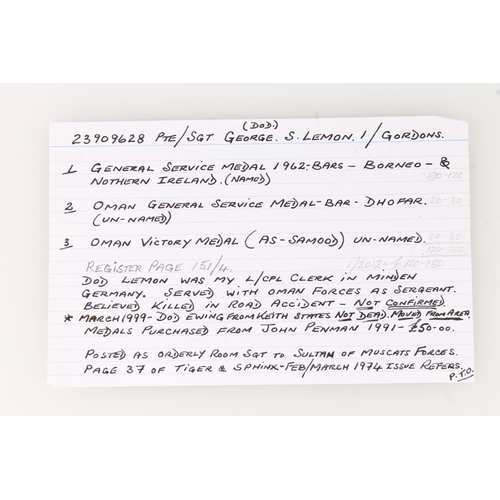 (DOD.)
23909628 PTE/SGT GEORGE. S. LEMON. 1/GORDONS.
1 GENERAL SERVICE MEDAL 1962-BARS - BORNEO - &
NOTHERN IRELAND. (NAMED) 80-120
2 OMAN GENERAL SERVICE MEDAL-BAR-DHOFAR. 20-30
(UN-NAMED)
3 OMAN VICTORY MEDAL (AS-SAMOOD) UN-NAMED. 20-30
120-180
REGISTER PAGE 151/4. 1/2012 120-180
DOD LEMON WAS MY L/CPL CLERK IN MINDEN
GERMANY. SERVED WITH OMAN FORCES AS SERGEANT.
BELIEVED KILLED IN ROAD ACCIDENT - NOT CONFIRMED
* MARCH 1999 - DOD EWING FROM KEITH STATES NOT DEAD. MOVED FROM AREA
MEDALS PURCHASED FROM JOHN PENMAN 1991 - £50-00.
POSTED AS ORDERLY ROOM SGT TO SULTAN OF MUSCATS FORCES.
PAGE 37 OF TIGER & SPHINX-FEB/MARCH 1974 ISSUE REFERS.
P.T.O.